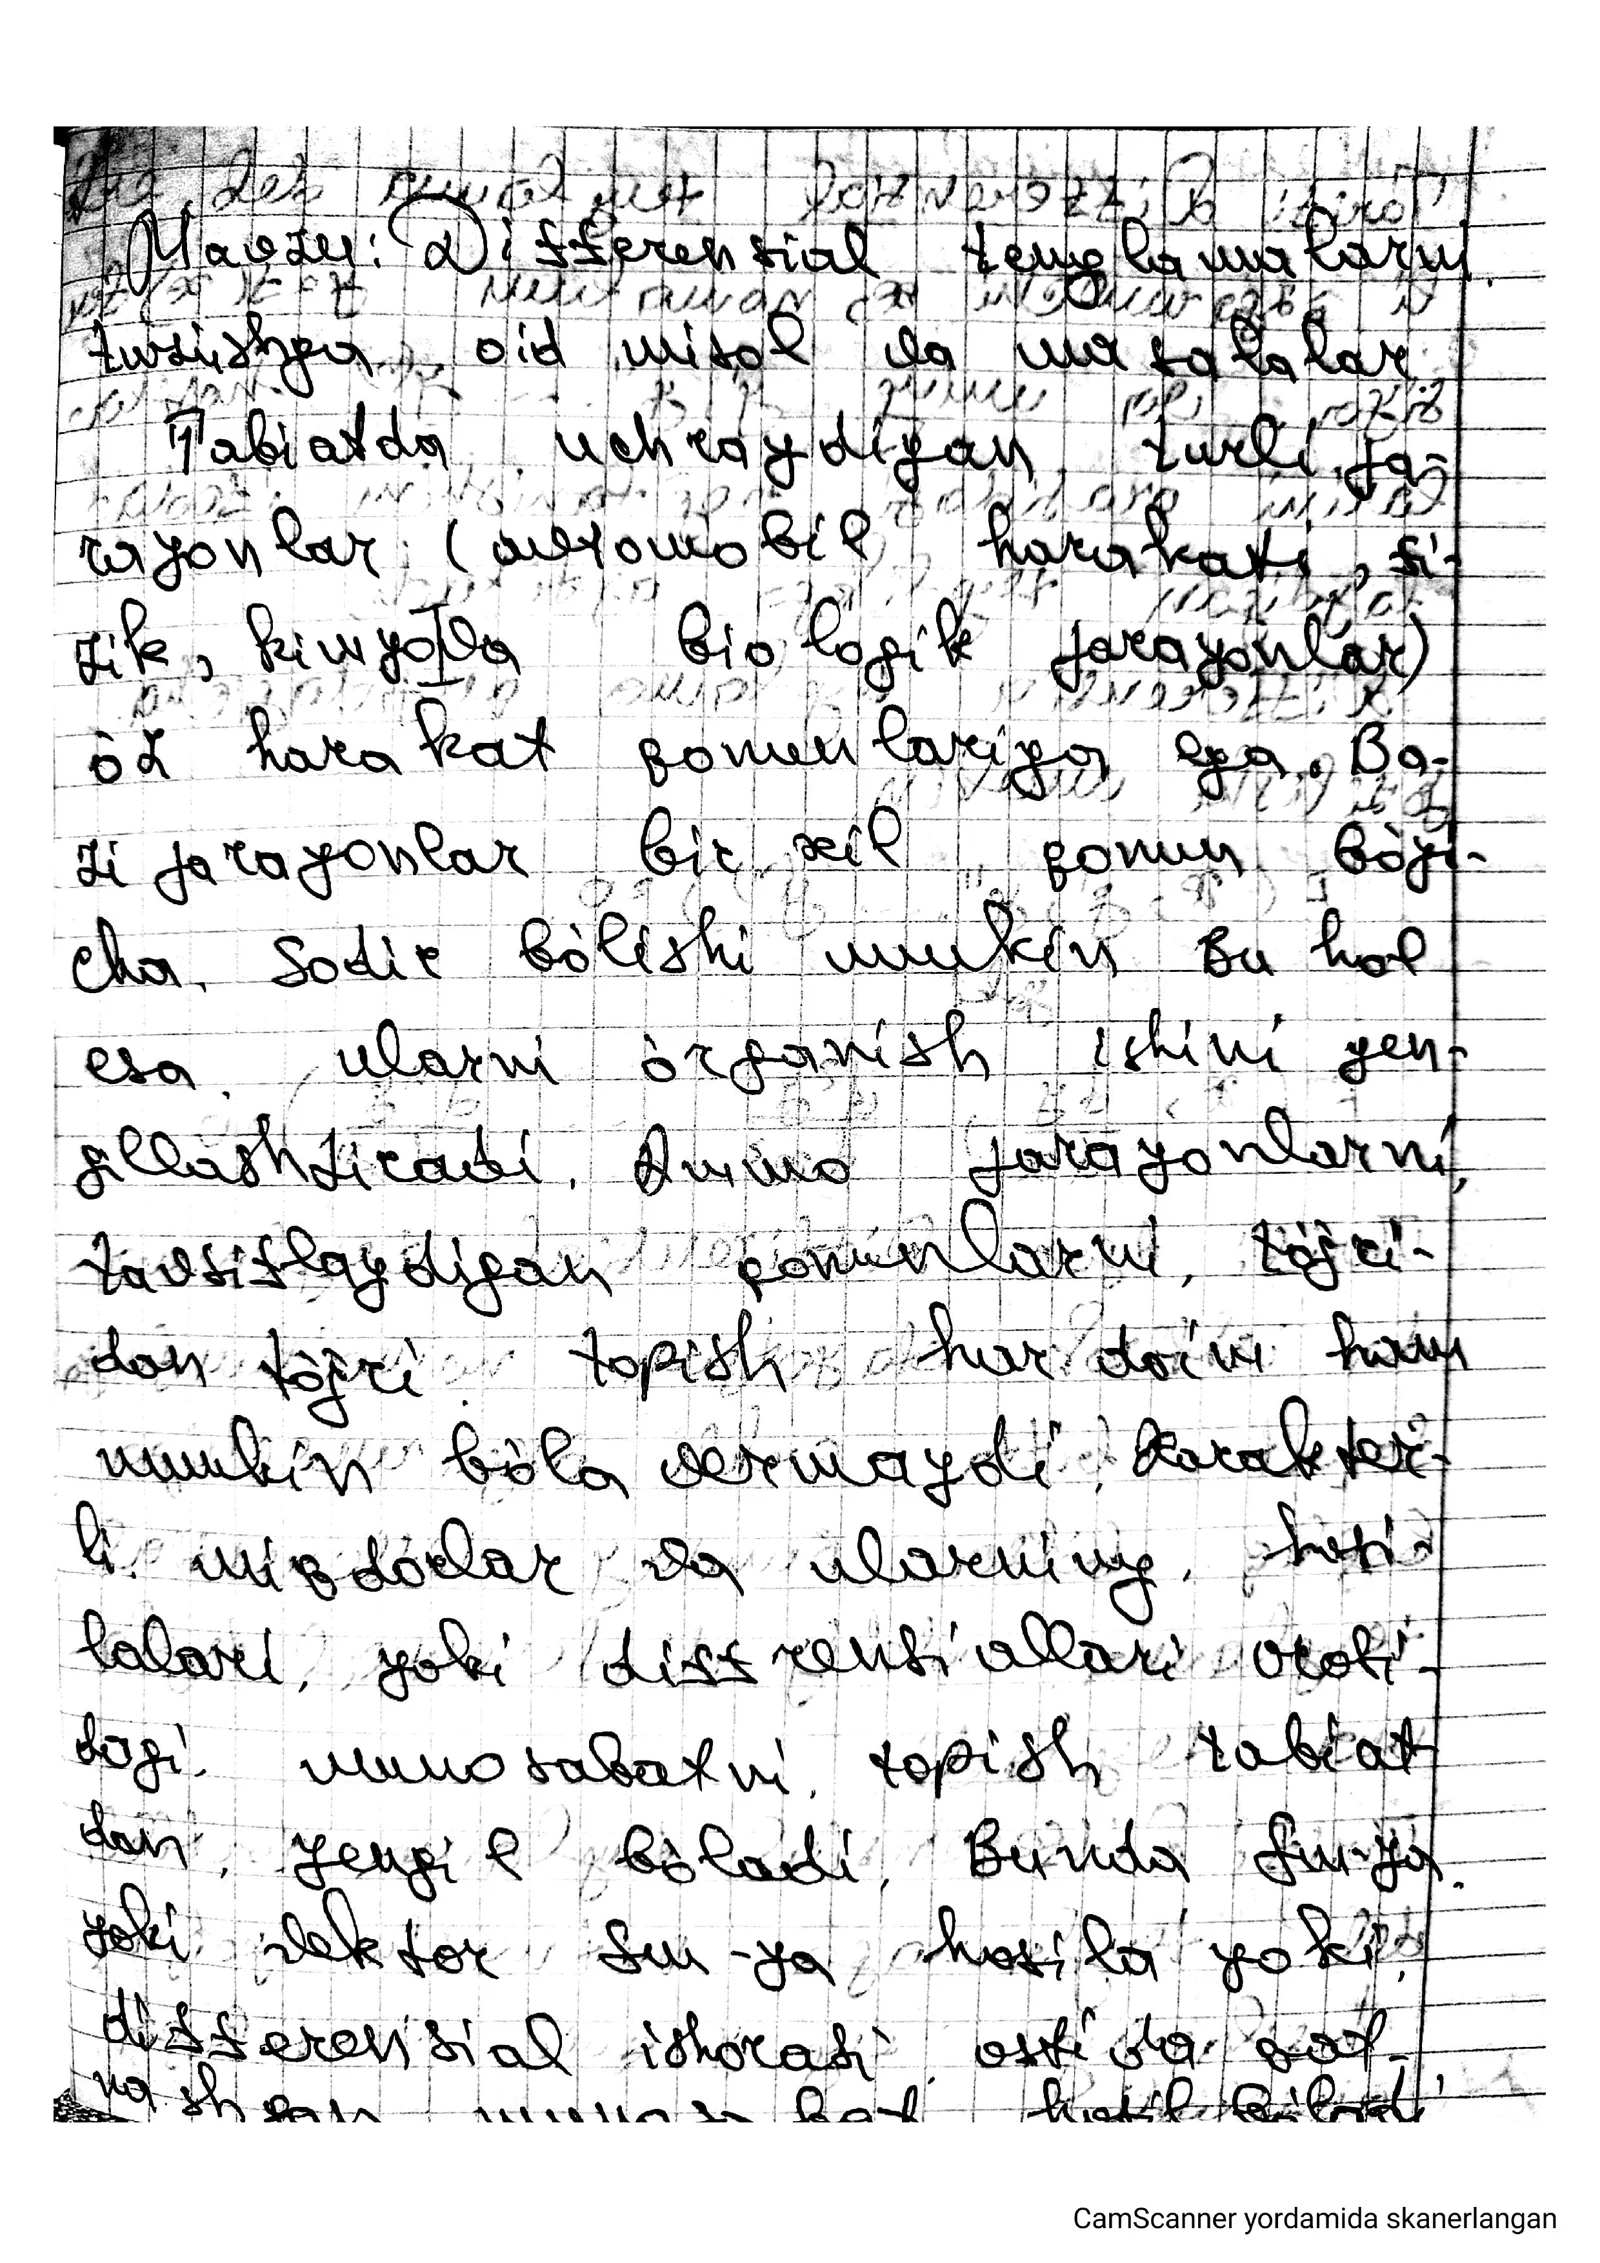 Mavzu: Differensial tenglamalarni
tuzishga oid misol va masalalar
Tabiatda uchraydigan turli ja-
rayonlar (avtomobil harakati, fi-
zik, kimyo va biologik jarayonlar)
òz harakat qonunlariga ega. Ba-
zi jarayonlar bir xil qonun bòyi-
cha sodir bòlishi mumkin Bu hol
esa ularni òrganish ishini yen-
gillashtiradi. Ammo jarayonlarni
tavsiflaydigan qonunlarni, tòjri-
dan tòjri topish har doim ham
mumkin bòla vermaydi. Xarakter-
li miqdorlar va ularning hosi-
lalari, yoki diffrensiallari orasi-
dagi munosabatni topish tabiat
dan, yengil bòladi. Bunda fun-ya
yoki vektor fun-ya hosila yoki
differensial ishorasi ostida qat-
nashgan munosabat hosil bòladi
CamScanner yordamida skanerlangan